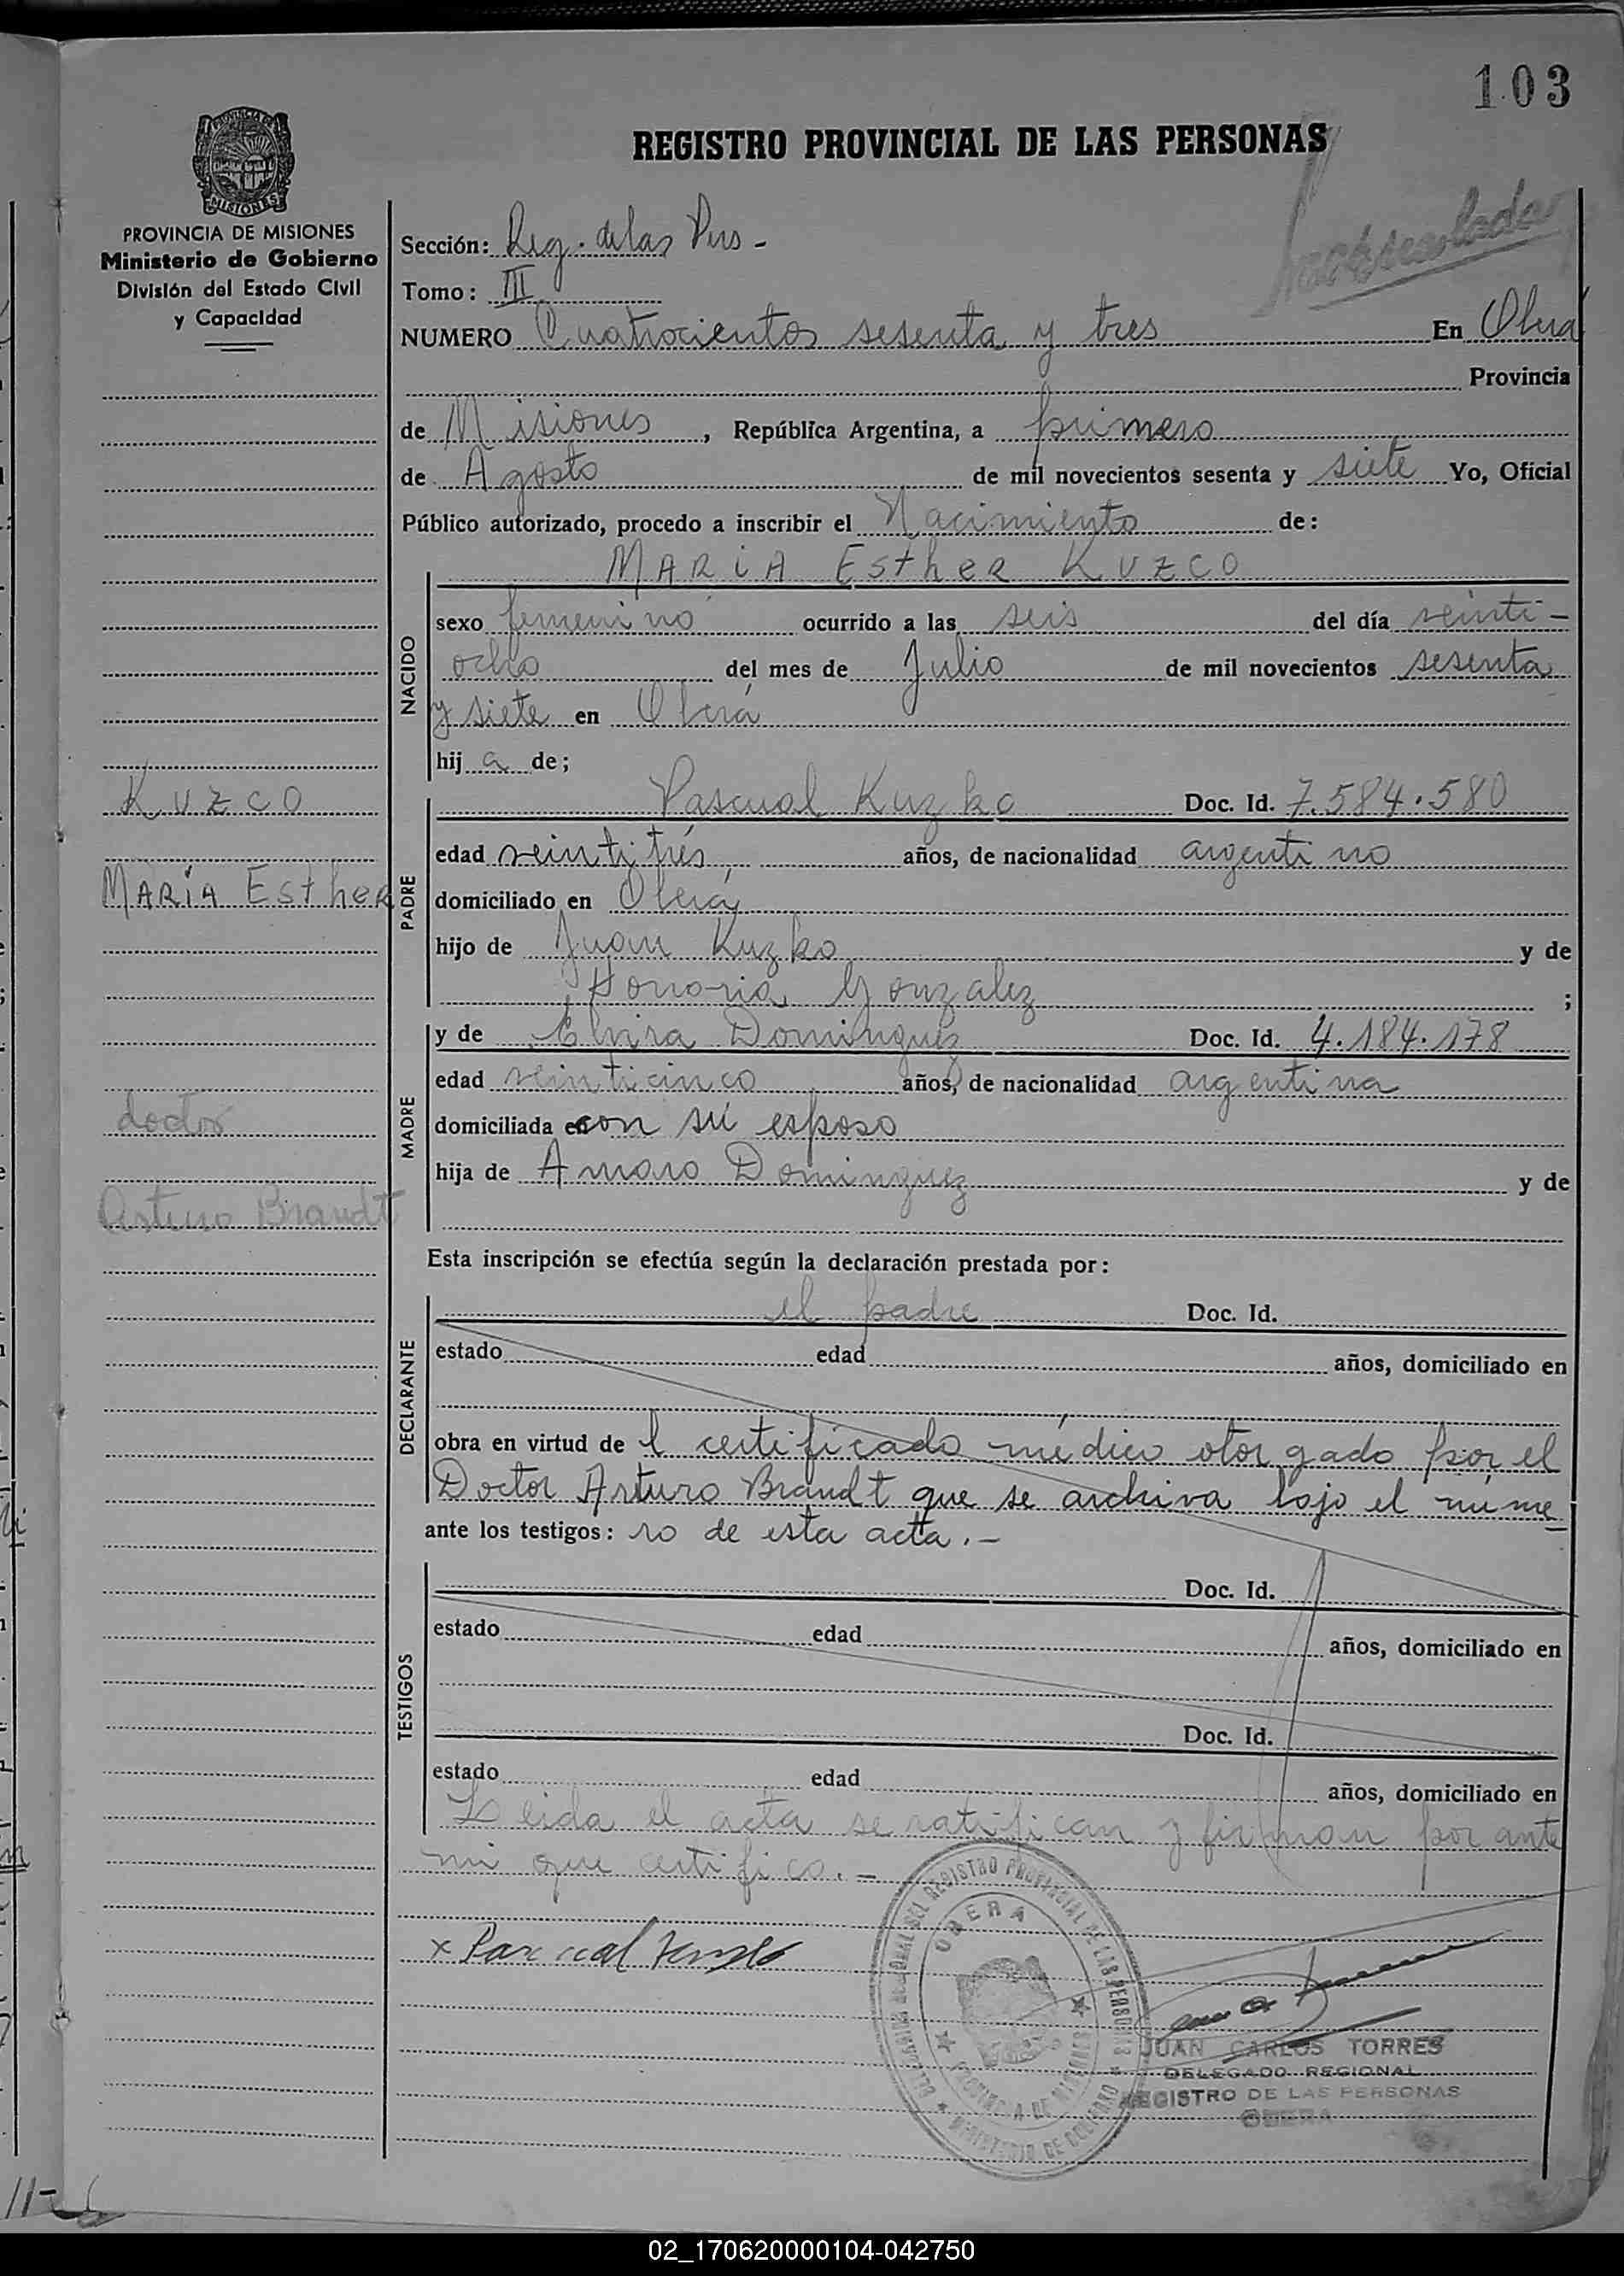 103
REGISTRO PROVINCIAL DE LAS PERSONAS
MISIONES
PROVINCIA DE MISIONES
Ministerio de Gobierno
División del Estado Civil
y Capacidad
Sección: Reg. de las Pers -
Tomo: III
NUMERO Cuatrocientos sesenta y tres En Oberá
Provincia
de Misiones, República Argentina, a primero
de Agosto de mil novecientos sesenta y siete Yo, Oficial
Público autorizado, procedo a inscribir el Nacimiento de:
MARIA Esther KUZCO
NACIDO
sexo femenino ocurrido a las seis del día veinti-
ocho del mes de Julio de mil novecientos sesenta
y siete en Oberá
hij a de;
KUZCO
MARÍA Esther
doctor
Arturo Brandt
PADRE
Pascual Kuzko Doc. Id. 7.584.580
edad veintitrés años, de nacionalidad argentino
domiciliado en Oberá
hijo de Juan Kuzko y de
Honoria Gonzalez ;
MADRE
y de Elvira Dominguez Doc. Id. 4.184.178
edad veinticinco años, de nacionalidad argentina
domiciliada con su esposo
hija de Amaro Dominguez y de
Esta inscripción se efectúa según la declaración prestada por:
DECLARANTE
el padre Doc. Id.
estado edad años, domiciliado en
obra en virtud de l certificado médico otorgado por el
Doctor Arturo Brandt que se archiva bajo el núme
ante los testigos: ro de esta acta.-
TESTIGOS
Doc. Id.
estado edad años, domiciliado en
Doc. Id.
estado edad años, domiciliado en
Leida el acta se ratifican y firman por ante
mi que certifico.-
x Pascual Kuzko
DELEGACION REGIONAL DEL REGISTRO PROVINCIAL DE LAS PERSONAS
OBERA
PROVINCIA DE MISIONES
MINISTERIO DE GOBIERNO
JUAN CARLOS TORRES
DELEGADO REGIONAL
REGISTRO DE LAS PERSONAS
OBERA
02_170620000104-042750